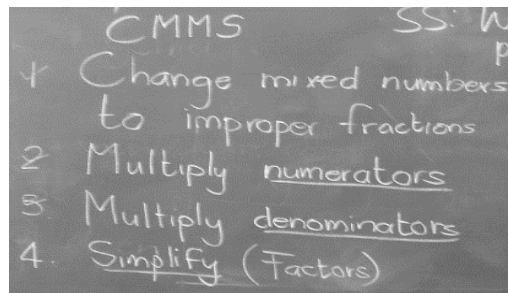 CMMS SS:
1 Change mixed numbers
to improper fractions
2 Multiply numerators
3. Multiply denominators
4. Simplify (Factors)